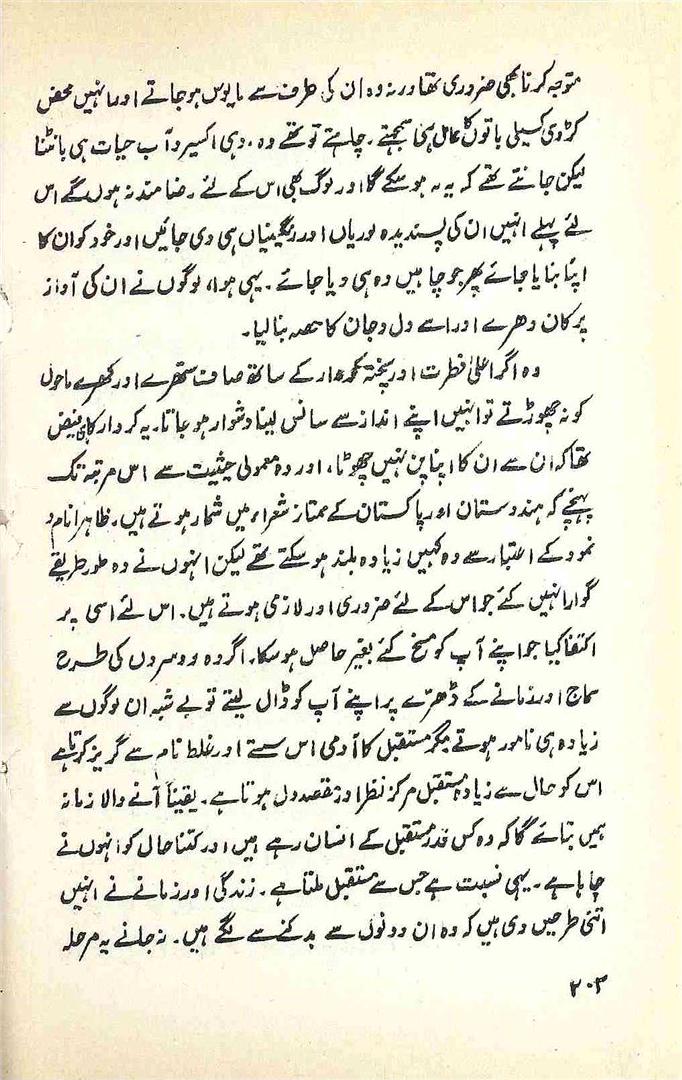 متوجہ کرنا بھی ضروری تھا ورنہ وہ ان کی طرف سے مایوس ہو جاتے اور انہیں محض
کڑوی کسیلی باتوں کا عامل ہی سمجھتے۔ چاہتے تو تھے وہ، وہی اکسیر و آب حیات ہی بانٹنا
لیکن جانتے تھے کہ یہ نہ ہو سکے گا اور لوگ بھی اس کے لئے رضا مند نہ ہوں گے اس
لئے پہلے انہیں ان کی پسندیدہ لوریاں اور رنگینیاں ہی دی جائیں اور خود کو ان کا
اپنا بنایا جائے پھر جو چاہیں وہ ہی دیا جائے۔ یہی ہوا، لوگوں نے ان کی آواز
پر کان دھرے اور اسے دل و جان کا حصہ بنا لیا۔
وہ اگر اعلیٰ فطرت اور پختہ کردار کے ساتھ صاف ستھرے اور نکھرے ماحول
کو نہ چھوڑتے تو انہیں اپنے انداز سے سانس لینا دشوار ہو جاتا۔ یہ کردار کا ہی فیض
تھا کہ ان سے ان کا اپنا پن نہیں چھوٹا، اور وہ معمولی حیثیت سے اس مرتبہ تک
پہنچے کہ ہندوستان اور پاکستان کے ممتاز شعراء میں شمار ہوتے ہیں۔ ظاہرا نام و
نمود کے اعتبار سے وہ کہیں زیادہ بلند ہو سکتے تھے لیکن انہوں نے وہ طور طریقے
گوارا نہیں کئے جو اس کے لئے ضروری اور لازمی ہوتے ہیں۔ اس لئے اسی پر
اکتفا کیا جو اپنے آپ کو مسخ کئے بغیر حاصل ہو سکا۔ اگر وہ دوسروں کی طرح
سماج اور زمانے کے ڈھرّے پر اپنے آپ کو ڈال لیتے تو بے شبہ ان لوگوں سے
زیادہ ہی نامور ہوتے مگر مستقبل کا آدمی اس سستے اور غلط نام سے گریز کرتا ہے
اس کو حال سے زیادہ مستقبل مرکز نظر اور مقصد دل ہوتا ہے۔ یقیناً آنے والا زمانہ
ہمیں بتائے گا کہ وہ کس قدر مستقبل کے انسان رہے ہیں اور کتنا حال کو انہوں نے
چاہا ہے۔ یہی نسبت ہے جس سے مستقبل ملتا ہے۔ زندگی اور زمانے نے انہیں
اتنی طرحیں دی ہیں کہ وہ ان دونوں سے بدکنے سے لگے ہیں۔ نہ جانے یہ مرحلہ
۲۰۳